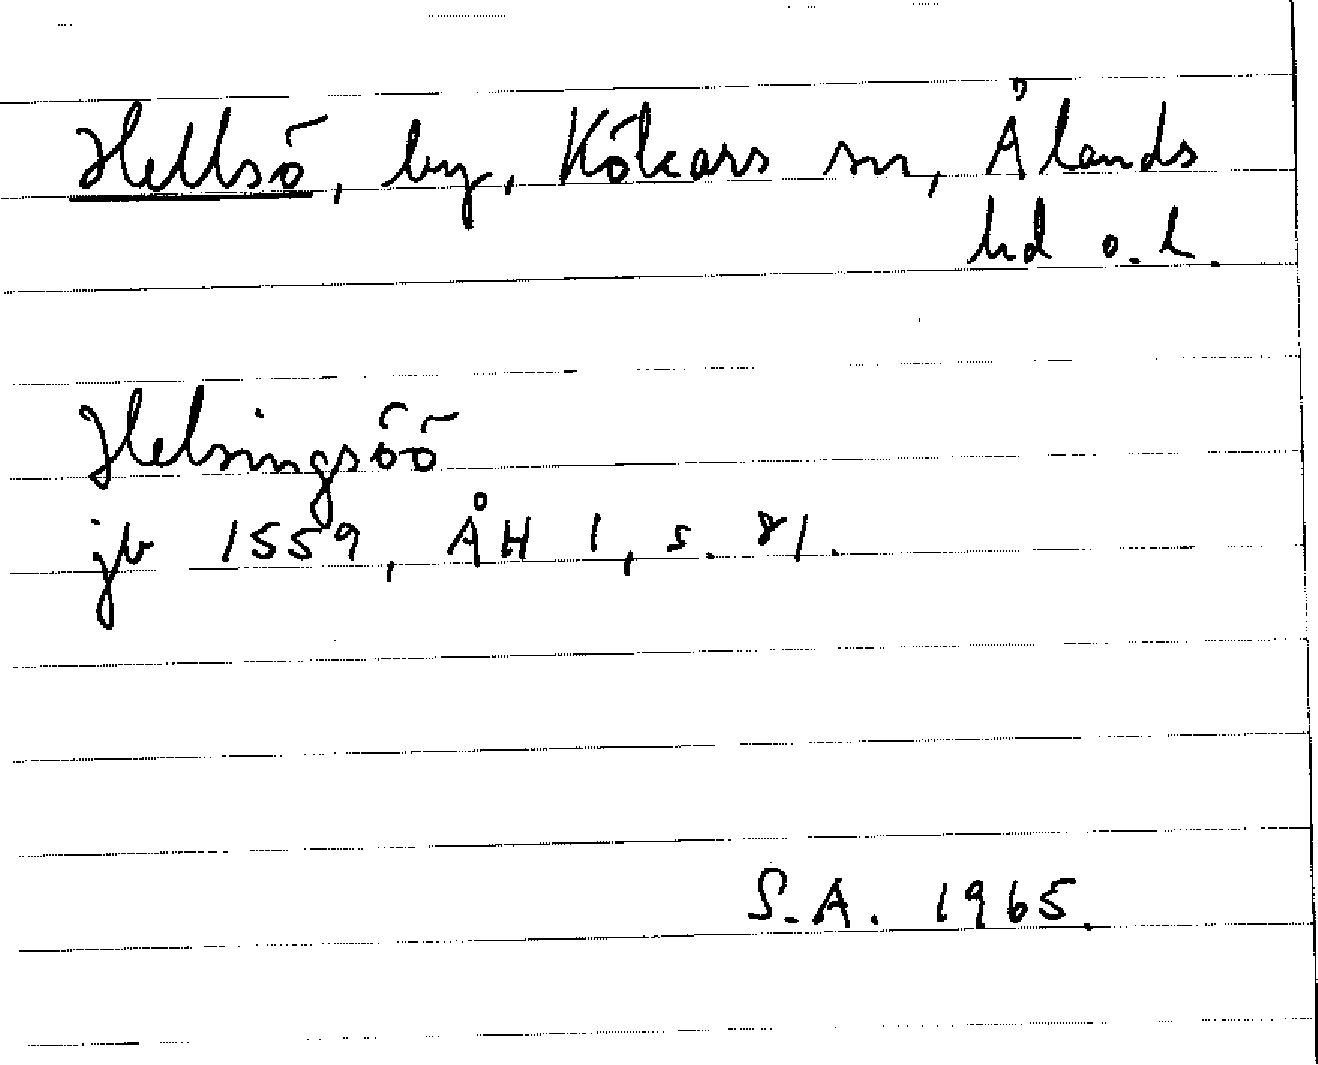 Hellsö, by, Kökars sn, Ålands
hd o. l.
Helsingsöö
jb 1559, ÅH 1, s. 81.
S.A. 1965.